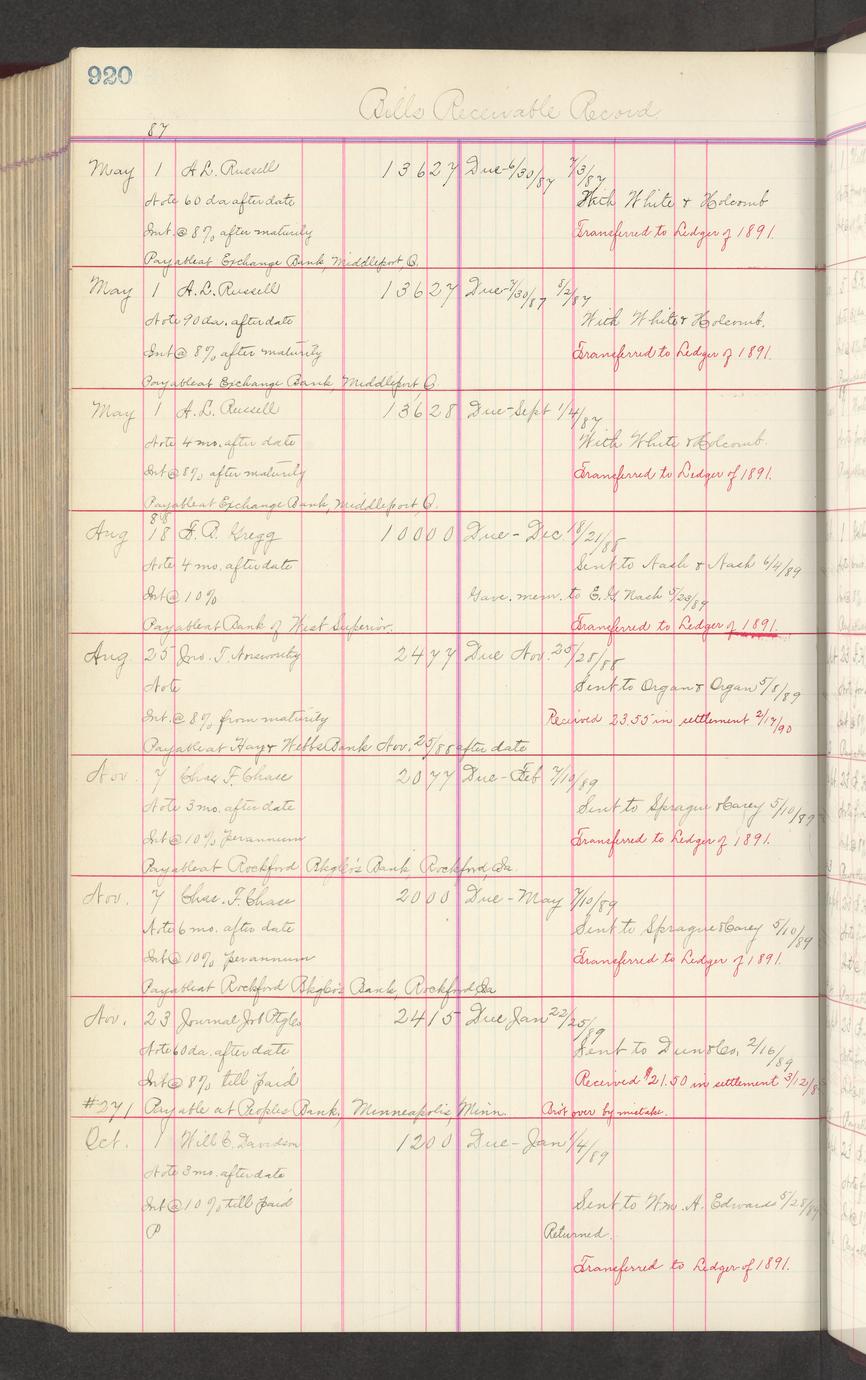 920
Bills Receivable Record
87
May 1 A. L. Russell 136 27 Due - 6/30/87 7/3/87
Note 60 da after date With White & Holcomb
Int. @ 8% after maturity Transferred to Ledger of 1891.
Payable at Exchange Bank, Middleport, O.
May 1 A. L. Russell 136 27 Due - 7/30/87 8/2/87
Note 90 da. after date With White & Holcomb.
Int @ 8% after maturity Transferred to Ledger of 1891.
Payable at Exchange Bank, Middleport O.
May 1 A. L. Russell 136 28 Due - Sept 1/4/87
Note 4 mo. after date With White & Holcomb.
Int @ 8% after maturity Transferred to Ledger of 1891.
Payable at Exchange Bank, Middleport O.
88
Aug 18 F. B. Gregg 100 00 Due - Dec. 18/21/88
Note 4 mo. after date Sent to Nash & Nash 6/4/89
Int @ 10% Gave. mem. to E. G. Nash 5/23/89
Payable at Bank of West Superior. Transferred to Ledger of 1891.
Aug 25 Jno. T. Norsworthy 24 77 Due Nov. 25/28/88
Note Sent to Organ & Organ 5/8/89
Int. @ 8% from maturity Received 23.55 in settlement 2/17/90
Payable at Hay & Webbs Bank Nov. 25/88 after date
Nov. 7 Chas. F. Chase 20 77 Due - Feb 7/10/89
Note 3 mo. after date Sent to Sprague & Carey 5/10/89
Int @ 10% per annum Transferred to Ledger of 1891.
Payable at Rockford Bkg Co's Bank Rockford, Ia.
Nov. 7 Chas. F. Chase 20 00 Due - May 7/10/89
Note 6 mo. after date Sent to Sprague & Carey 5/10/89
Int @ 10% per annum Transferred to Ledger of 1891.
Payable at Rockford Bkg Co's Bank, Rockford Ia
Nov. 23 Journal Job Ptg Co 24 15 Due Jan 22/25/89
Note 60 da. after date Sent to Dun & Co. 2/16/89
Int @ 8% till paid Received $21.50 in settlement 3/12/8
#271 Payable at Peoples Bank, Minneapolis, Minn. Brot over by mistake.
Oct. 1 Will C. Davidson 12 00 Due - Jan 1/4/89
Note 3 mo. after date
Int @ 10% till paid Sent to Wm. A. Edwards 5/28/89
P Returned.
Transferred to Ledger of 1891.